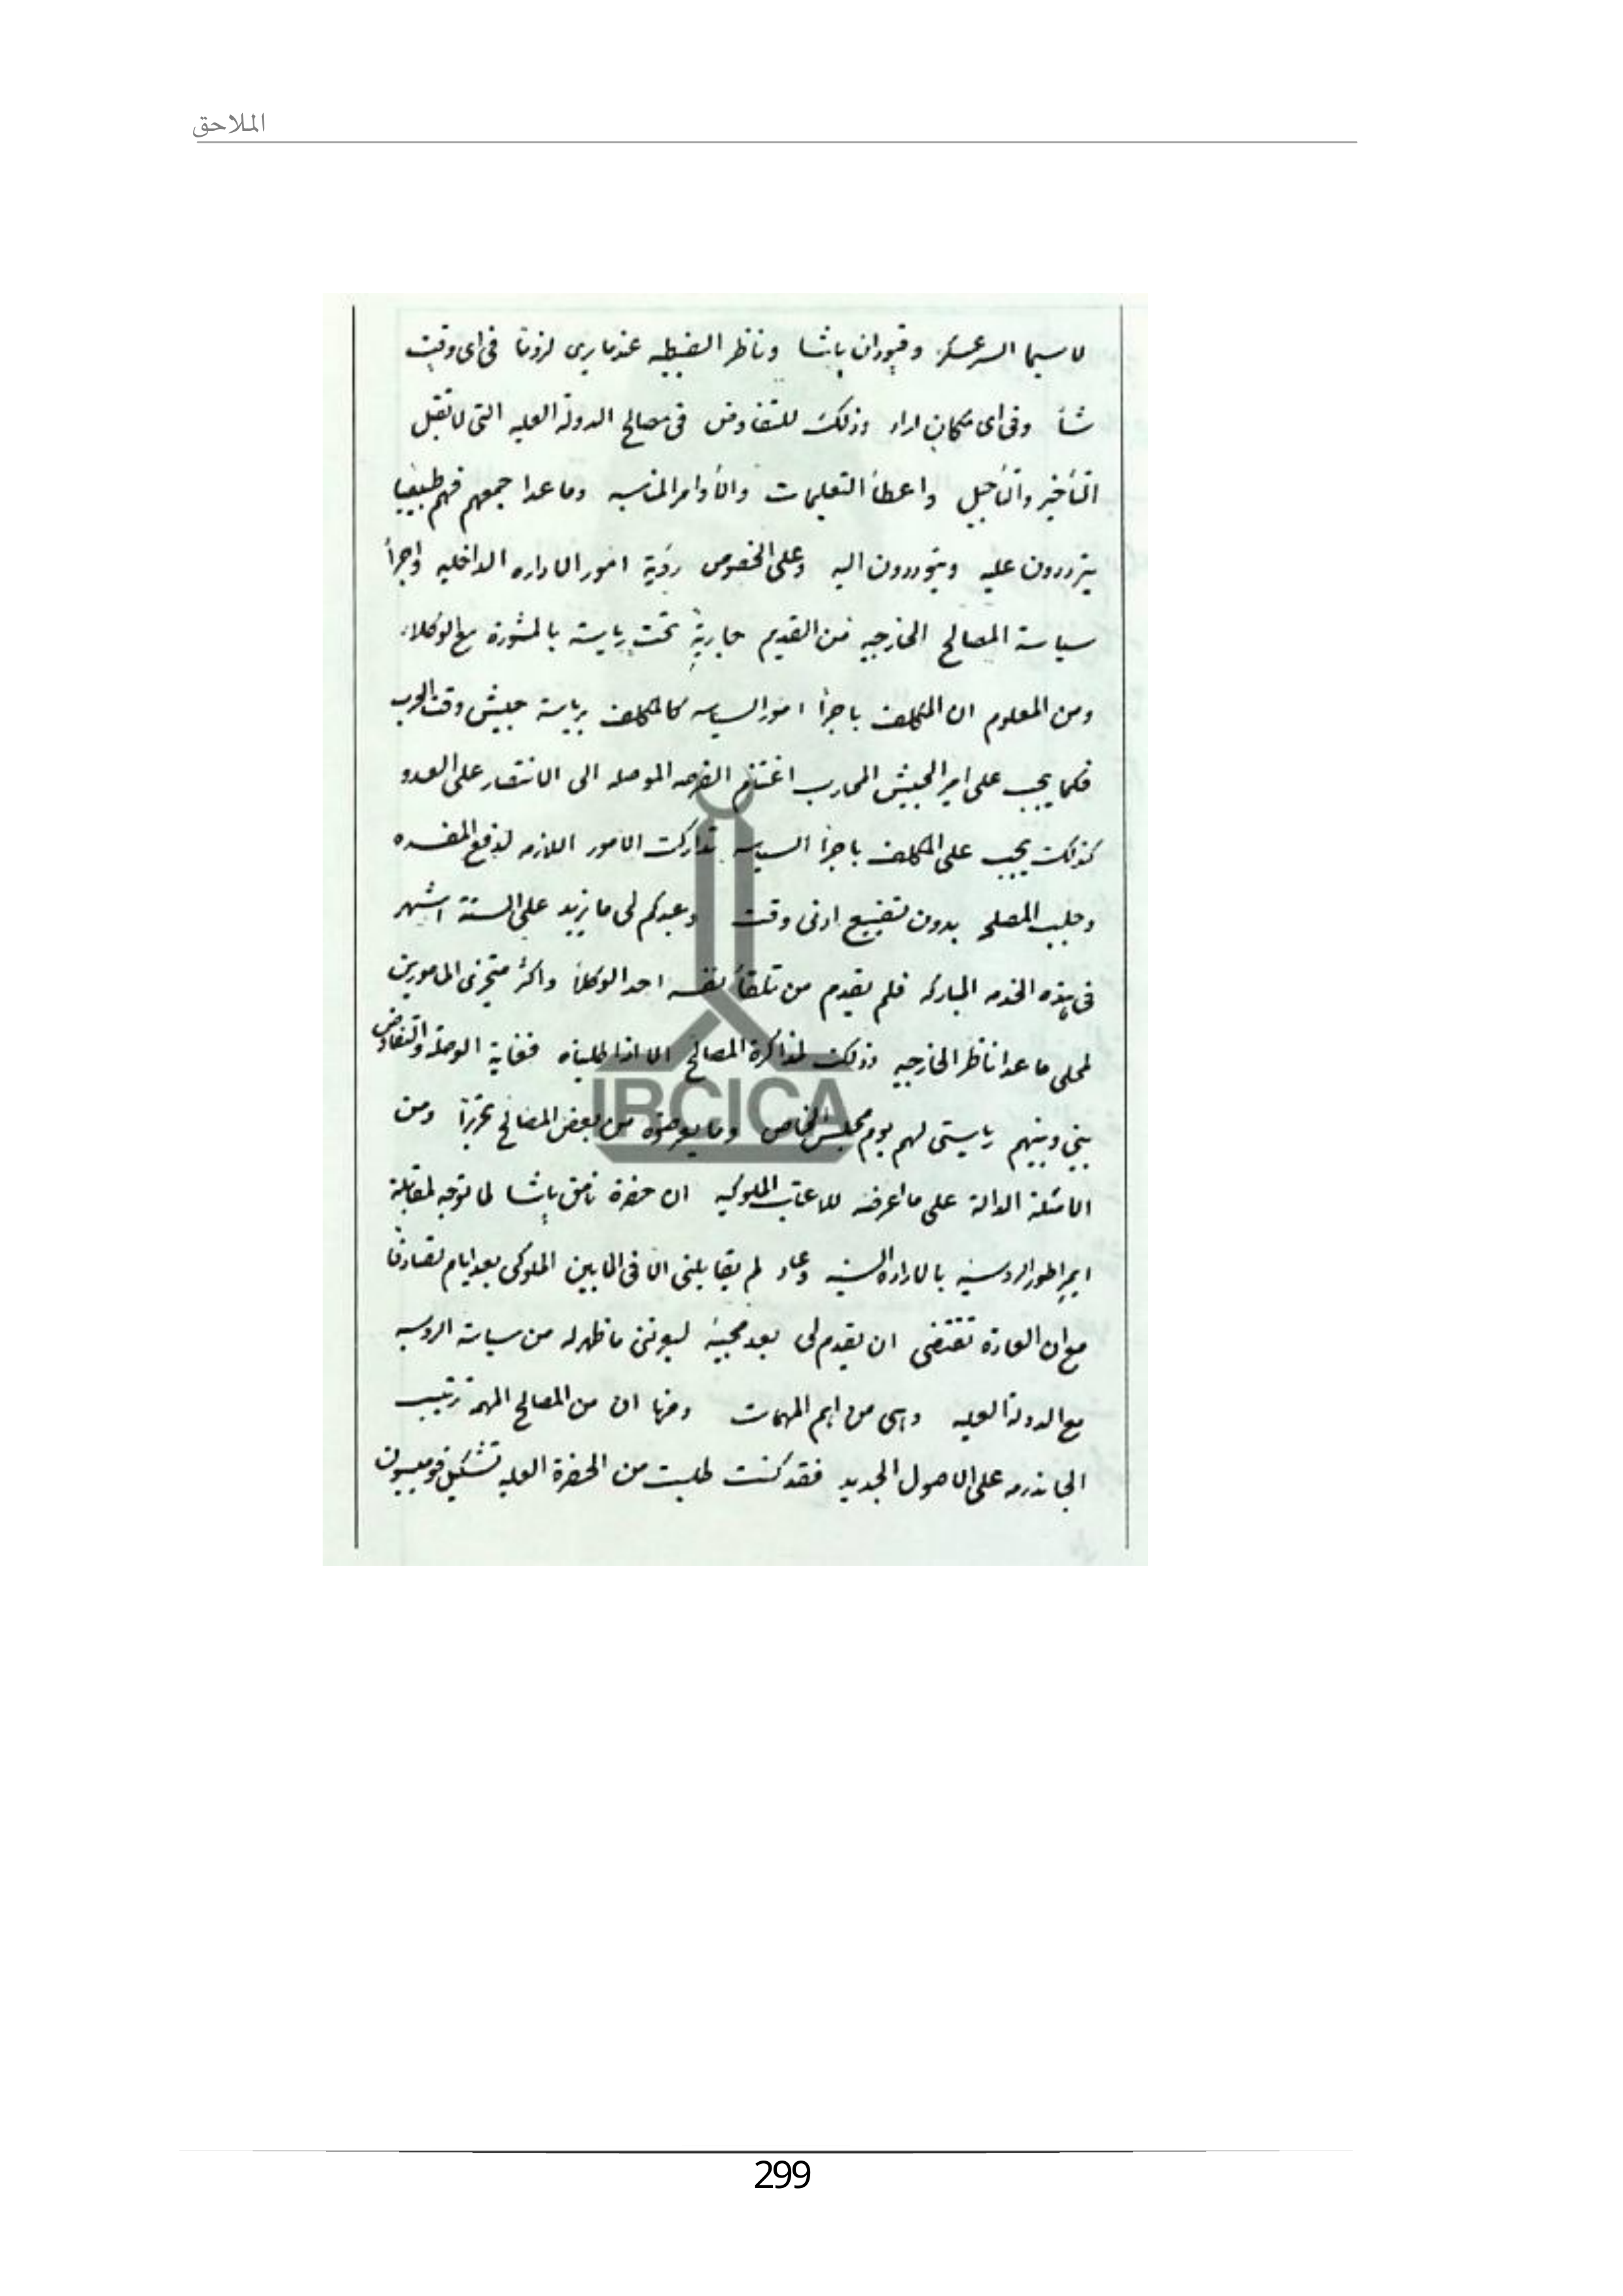 الملاحق
لاسيما السرعسكر وقپودان پاشا وناظر الضبطيه عندما يرى لزوما فى اى وقت
شأ وفى اى مكان اراد وذلك للتفاوض فى مصالح الدولة العليه التى لا تقبل
التأخير والتأجيل واعطأ التعليمات والأوامر المناسبه وماعدا جمعهم فهم طبيعيا
يترددون عليه ويتوددون اليه وعلى الخصوص رؤية امور الاداره الداخليه واجرأ
سياسة المصالح الخارجيه فمن القديم جارية تحت رياسته بالمشورة مع الوكلاء
ومن المعلوم ان المكلف باجرأ امور السياسه كالمكلف برياسة جيش وقت الحرب
فكما يجب على امير الجيش المحارب اغتنام الفرصه الموصله الى الانتصار على العدو
كذلك يجب على المكلف باجرأ السياسه تدارك الامور اللازمه لدفع المفسده
وجلب المصلحه بدون تضييع ادنى وقت وعبدكم لى ما يزيد على الستة اشهر
فى هذه الخدمه المباركه فلم يقدم من تلقأ نفسه احد الوكلأ واكثر متحيزى المامورين
لمحلى ماعدا ناظر الخارجيه وذلك لمذاكرة المصالح الا اذا طلبناه فغاية الوصلة والتفاوض
بينى وبينهم رياستى لهم يوم مجلس الخاص وما يعرضوه من بعض المصالح تحريرا ومن
الامثلة الدالة على ما اعرضه للاعتاب الملوكيه ان حضرة نامق پاشا لما توجه لمقابلة
ايمپراطور الروسيه بالاراده السنيه وعاد لم يقابلنى الا فى المابين الملوكى بعد ايام تصادفا
مع ان العادة تقتضى ان يقدم لى بعد مجيئه ليعرفنى ما ظهر له من سياسة الروسيه
مع الدولة العليه وهى من اهم المهمات ومنها ان من المصالح المهمة ترتيب
الجاندرمه على الاصول الجديد فقد كنت طلبت من الحضرة العليه تشكيل قوميسيون
IRCICA
299